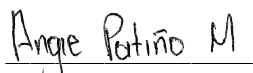 Angie Patiño M